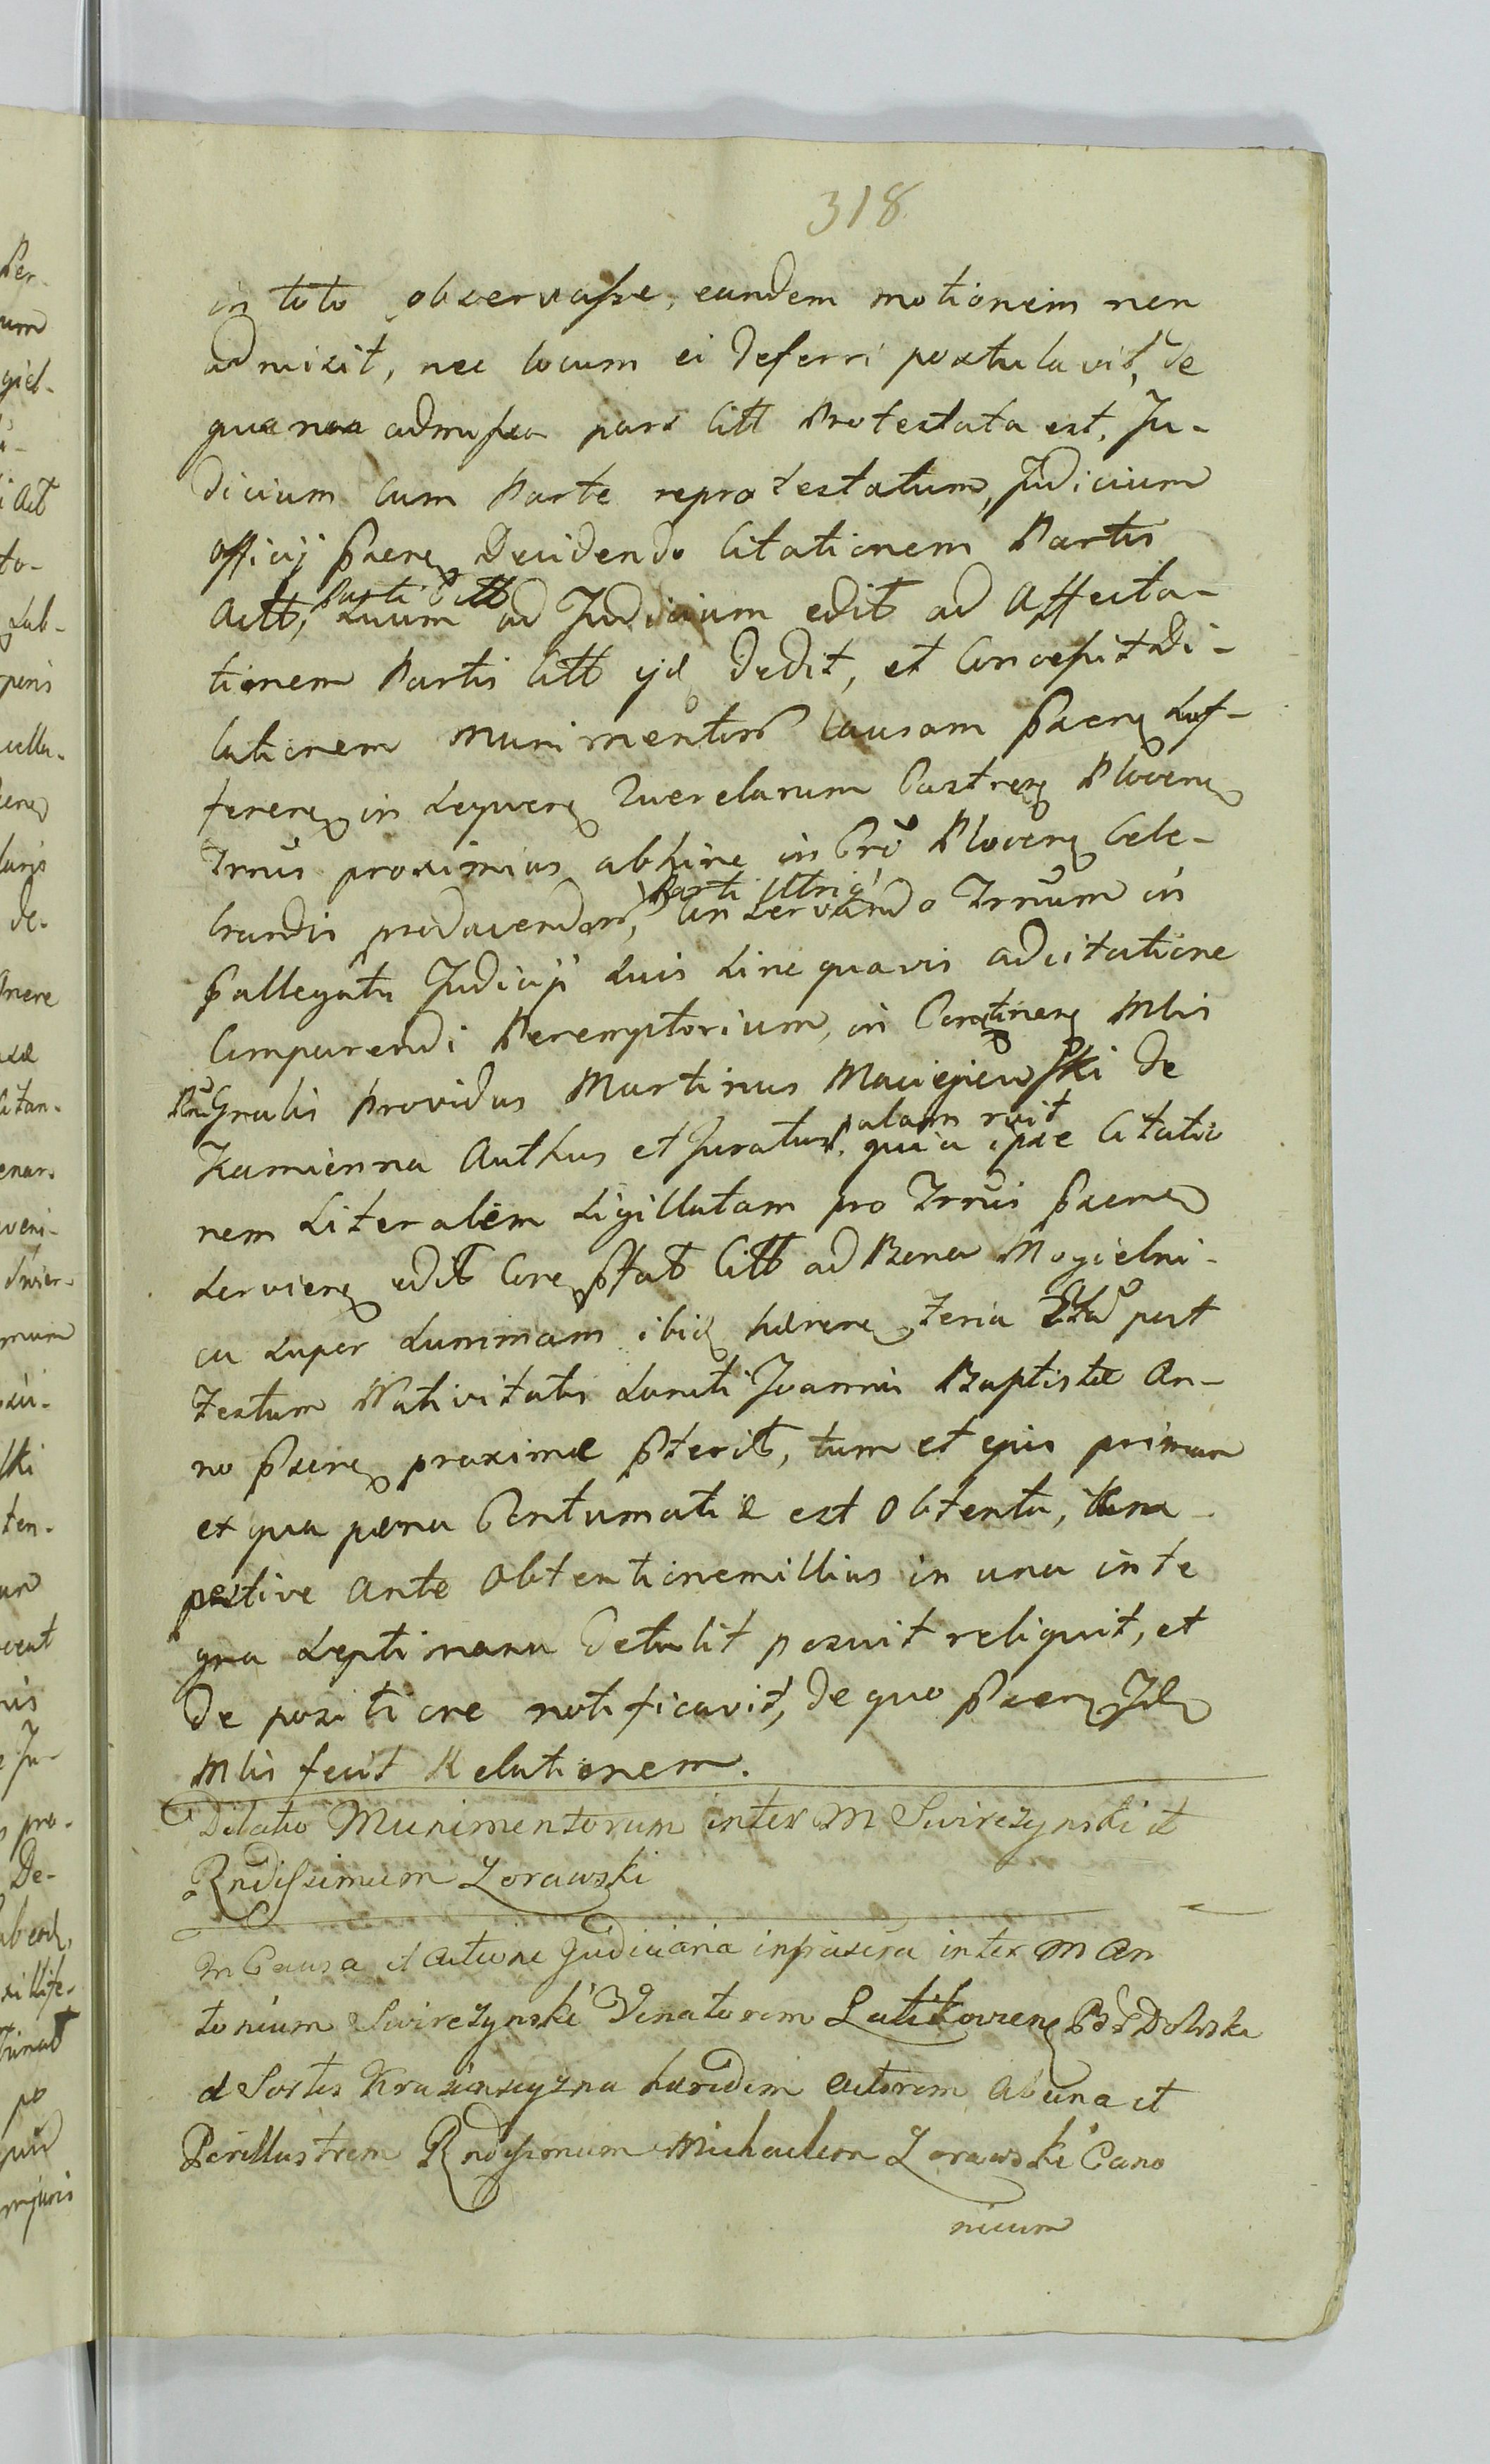 318
in toto observasse, eandem motionem non
admisit, nec locum ei deferri postulavit, de
qua non admissa pars Citt Protestata est, Ju-
dicium cum Parte reprotestatum, Judicium
officij pscns Decidendo Citationem Partis
Actt, Parti Citt suum ad Judicium edit ad Affecta-
tionem Partis Citt ejd dedit, et Concessit Di-
lationem Munimentor causam pscns Suf-
feren in Sequen Querelarum Castren Plocen
Trnis proximius abhinc in Cro Plocen Cele-
brandis producendor, Parti Utriq conservando Trnum in
pallegatu Judicij suis sine quavis adcitatione
Comparendi Peremptorium, in Continen Mlis
Rni Gnalis Providus Martinus Maciejewski de
Kamienna Authus et Juratus palam rvit quia ipse Citatio
nem Literalem Sigillatam pro Trnis pscns
Servien edit Con pstat Citt ad Bona Mogielni-
ca super summam ibid haeren Feria 2da post
Festum Nativitatis Sancti Joannis Baptistae An-
no pscns proximae pterit, tum et ejus primam
ex qua paena Contumatiae est Obtenta, tem-
pestive ante Obtentionem illius in una inte
gra Septimana detulit posuit reliquit, et
de positione notificavit, de quo pscns Jd
Mlis fecit Relationem.
Dilatio Munimentorum inter M Swirczynski et
Rndissimum Zorawski
In Causa et actione Judiciaria infrascra inter M An
tonium Swirczynski Venatorem Latitovien B Dolska
et Sortis Krasinszczyzna haeredem actorem ab una et
Perillustrem Rndissimum Michaelem Zorawski Cano
nicum